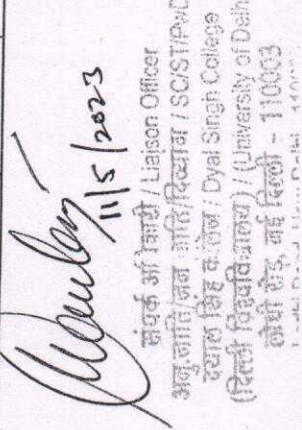 11/5/2023
संपर्क अधिकारी / Liaison Officer
अनु.जाति/जन जाति/दिव्यांग / SC/ST/PwD
दयाल सिंह कॉलेज / Dyal Singh College
(दिल्ली विश्वविद्यालय) / (University of Delhi
लोधी रोड, नई दिल्ली - 110003